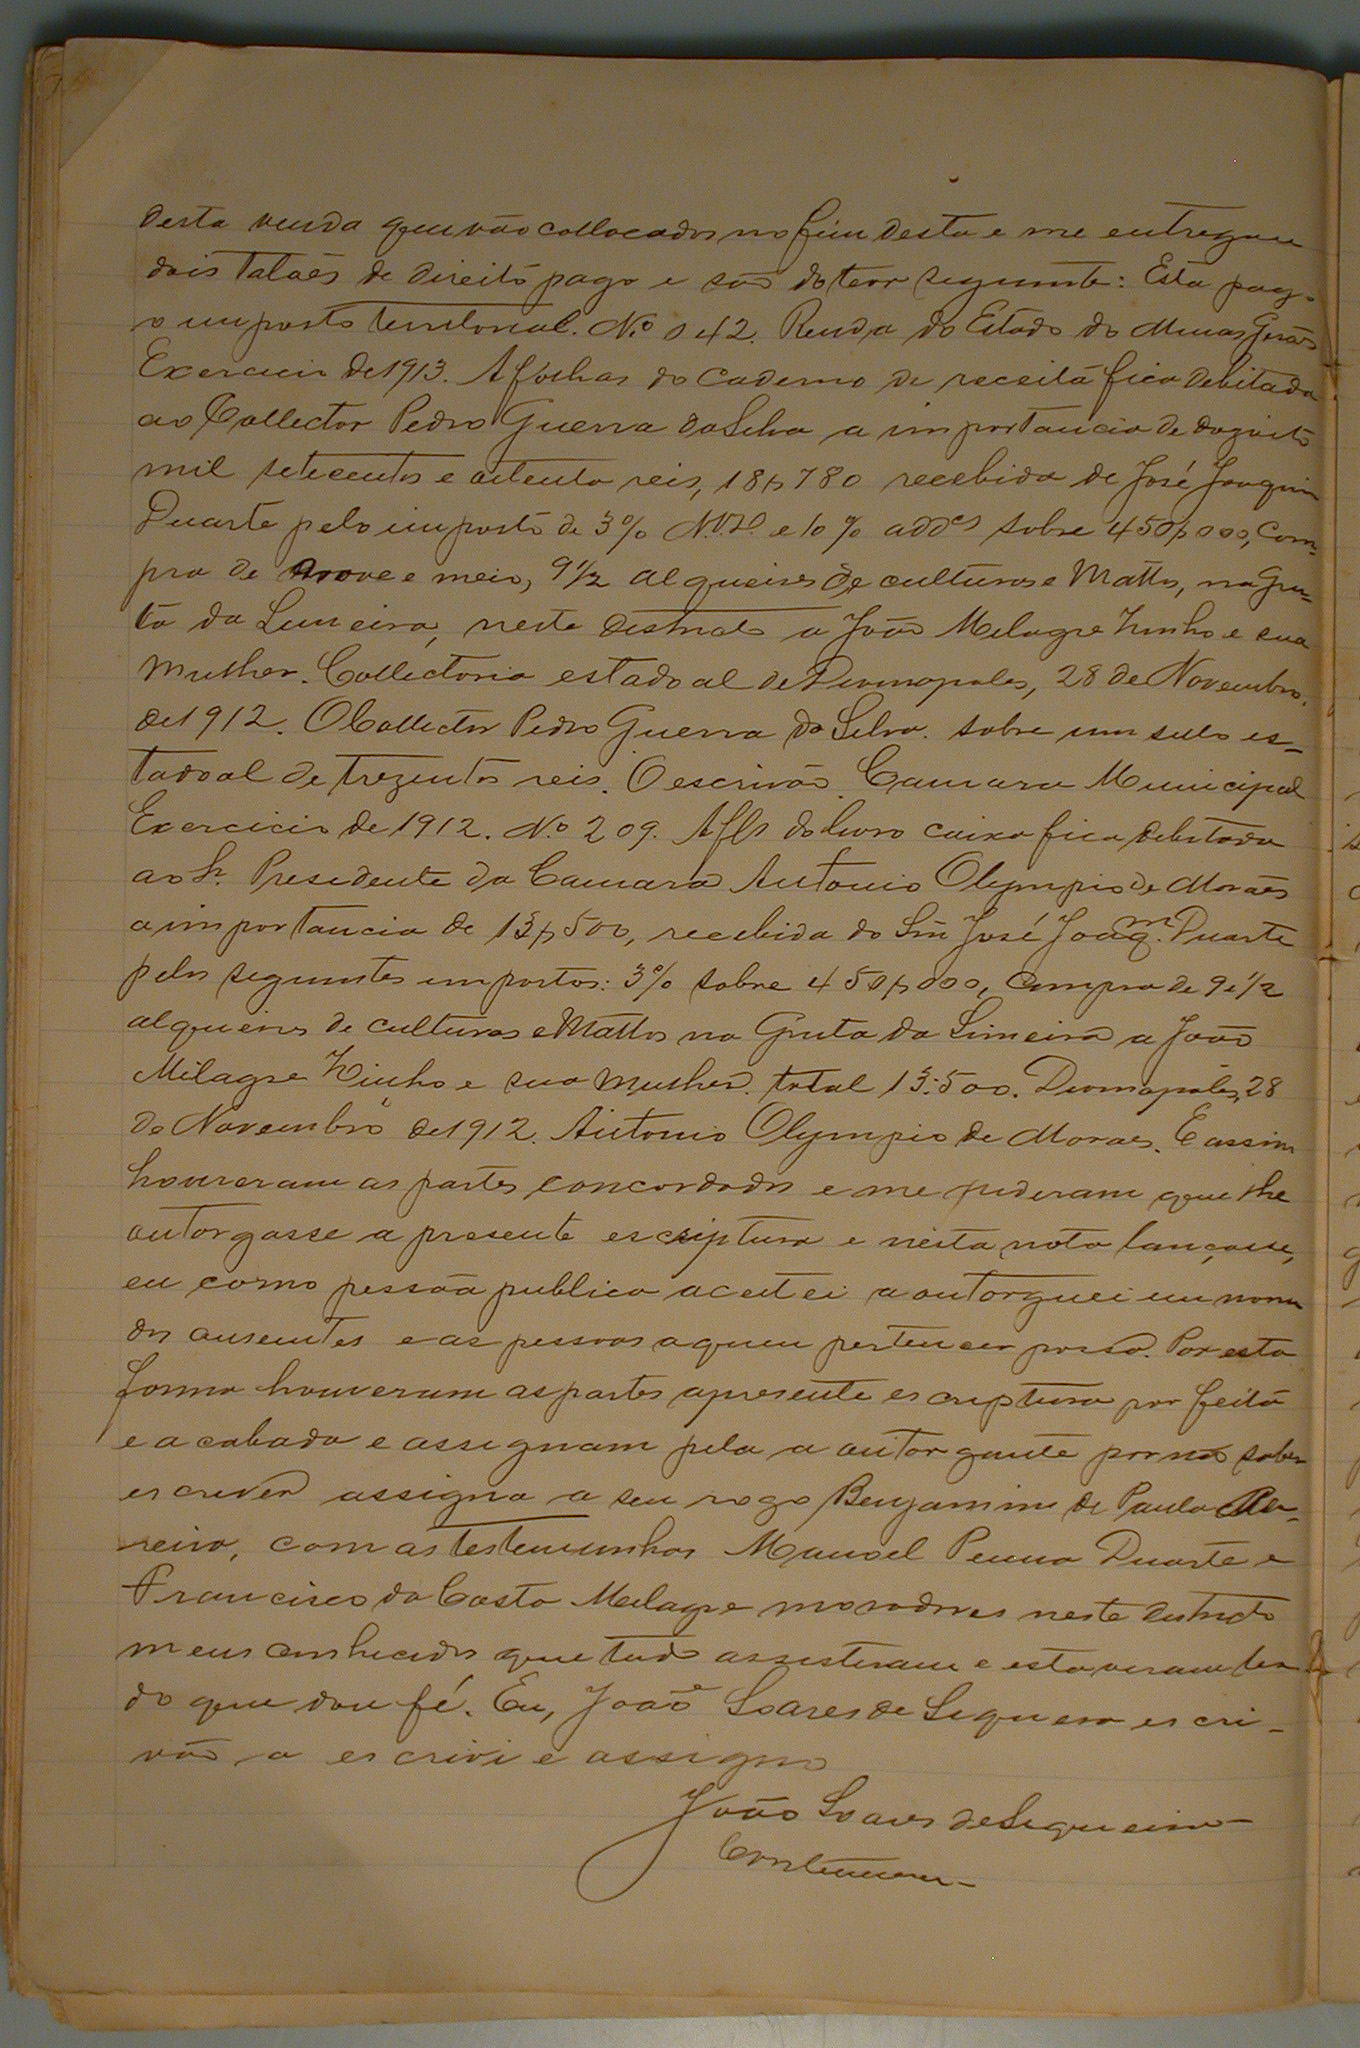 desta venda que vão collocados no fim desta e me entregou
dois talões de direito pago e são do teor seguinte: Esta pag-
o imposto territorial. N.o 042. Renda do Estado de Minas Geraes
Exercicio de 1913. A folhas do caderno de receita fica debitada
ao Collector Pedro Guerra da Silva a importancia de dezoito
mil setecentos e oitenta reis, 18$780 recebida de José Joaquim
Duarte pelo imposto de 3% e 10% add.es sobre 450$000, com-
pra de nove e meio, 9 1/2 alqueires de culturas e Mattos, na Gru-
ta da Limeira, neste districto a João Milagre Zinho e sua
mulher. Collectoria estadoal de Divinopoles, 28 de Novembro
de 1912. O Collector Pedro Guerra da Silva. sobre um sello es-
tadoal de trezentos reis. O escrivão. Camara Municipal
Exercicio de 1912. N.o 209. A fls do livro caixa fica debitada
ao Sr. Presidente da Camara Antonio Olympio de Moraes
a importancia de 13$500, recebida do Snr José Joaq.m Duarte
pelos seguintes impostos: 3% sobre 450$000, compra de 9 e 1/2
alqueires de culturas e Mattos na Gruta da Limeira a João
Milagre Zinho e sua mulher. total 13:500. Divinopoles, 28
de Novembro de 1912. Antonio Olympio de Moraes. E assim
houveram as partes concordados e me pediram que lhe
outorgasse a presente escriptura e nesta nota lançasse,
eu como pessôa publica aceitei a outorguei em nome
dos ausentes e as pessoas a quem pertencer possa. Por esta
forma houveram as partes apresente escriptura por feita
e acabada e assignam pela a outorgante por não saber
escrever assigna a seu rogo Benjamim de Paula
reira, com as testemunhas Manoel Penna Duarte e
Francisco da Costa Milagre moradores neste districto
meus conhecidos que tudo assistiram e estaveram
do que dou fé. Eu, João Soares de Sequeira escri-
vão a escrivi e assigno
João Soares de Sequeira